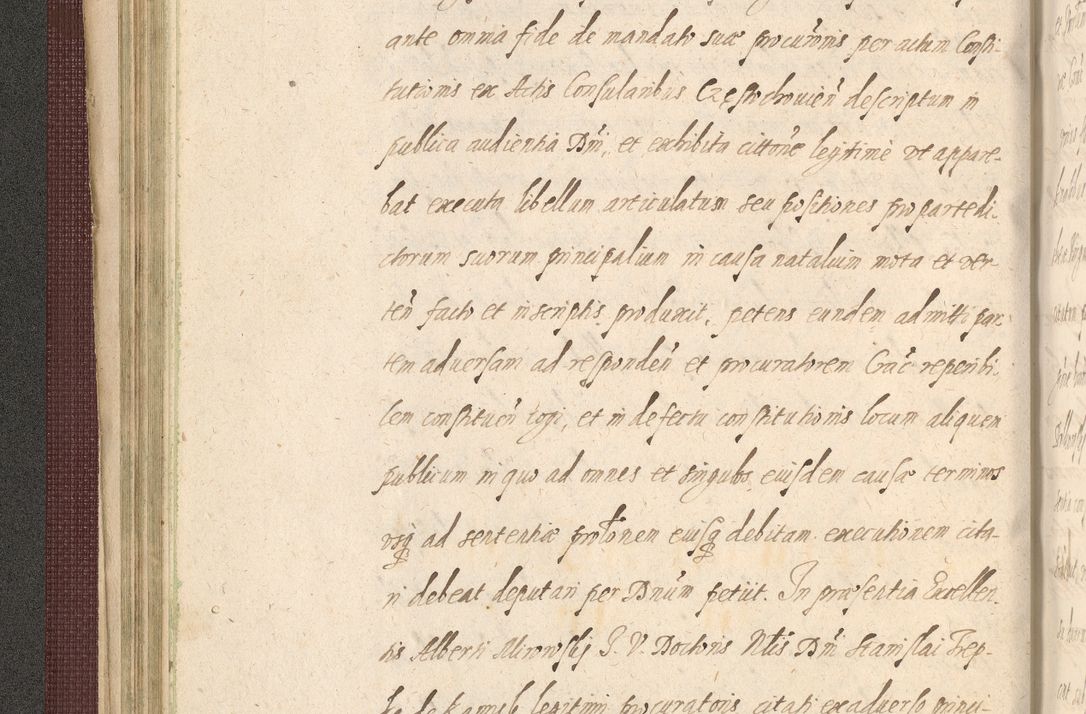 ante omnia fide de mandato suæ procurõnis per actum Consti-
tutionis ex Actis Consularibus Częstochouien̄ descriptum in
publica audientia Dñi, et exhibita cittõne legitime vt appare-
bat executa libellum articulatum seu positiones pro parte di-
ctorum suorum principalium in causa natalium mota et ver-
ten̄ facto et in scriptis produxit, petens eundem admitti par-
tem aduersam ad responden̄ et procuratorem Crac̄ reperibi-
lem constituen̄ cogi, et in defectu constitutionis locum aliquem
publicum in quo ad omnes et singulos eiusdem causæ terminos
vsq ad sententiæ prolõnem eiusq debitam executionem cita-
ri debeat deputari per Dnum petiit. In præsentia Excellen-
tis Alberti Mirowskj J. V. Doctoris Nlis Dñi Stanislai Trep-
ka de legitimi procuratoris citati ex aduerso princi-